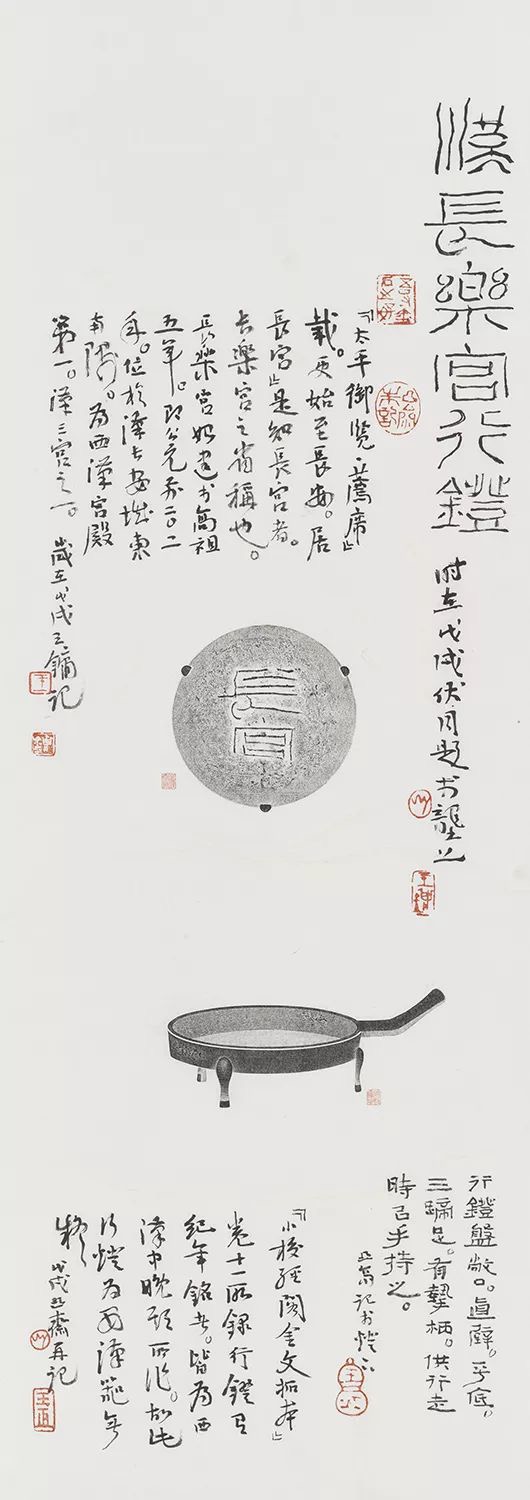 漢長樂宮行鐙
時在戊戌伏月題於龍山
『太平御覽·薦席』
載。更始至長安。居
長宮』是知長宮者。
長樂宮之省稱也。
長樂宮始建於高祖
五年。即公元前二〇二
年。位於漢長安城東
南隅。為西漢宮殿
第一。漢三宮之一。
歲在戊戌三鏞記
長宮
行鐙盤敞口。直壁。平底。
三蹄足。有執柄。供行走
時以手持之。
『小校經閣金文拓本』
卷十一所錄行鐙有
紀年銘者。皆為西
漢中晚期所作。故此
行鐙為西漢器無
疑
戊戌 齋再記